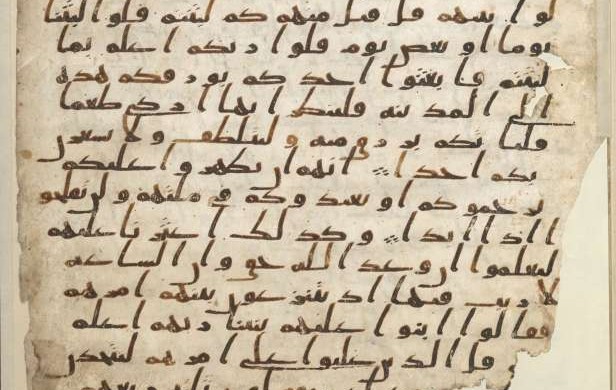 لوا بينهم قل قيل منهم كم لبثتم قلوا لبثنا
يوما او بعض يوم قلوا ربكم اعلم بما
لبثتم فابعثوا احدكم بورقكم هذه
الى المدينه فلينظر ايها ازكى طعما
فلياتكم برزق منه وليتلطف ولا يشعرن
بكم احدا انهم ان يظهروا عليكم
يرجموكم او يعيدوكم في ملتهم ولن تفلحوا
اذا ابدا وكذلك اعثرنا عليهم
ليعلموا ان وعد الله حق وان الساعه
لا ريب فيها اذ يتنزعون بينهم امرهم
فقالوا ابنوا عليهم بنينا ربهم اعلم
قل الذين غلبوا على امرهم لنتخذن